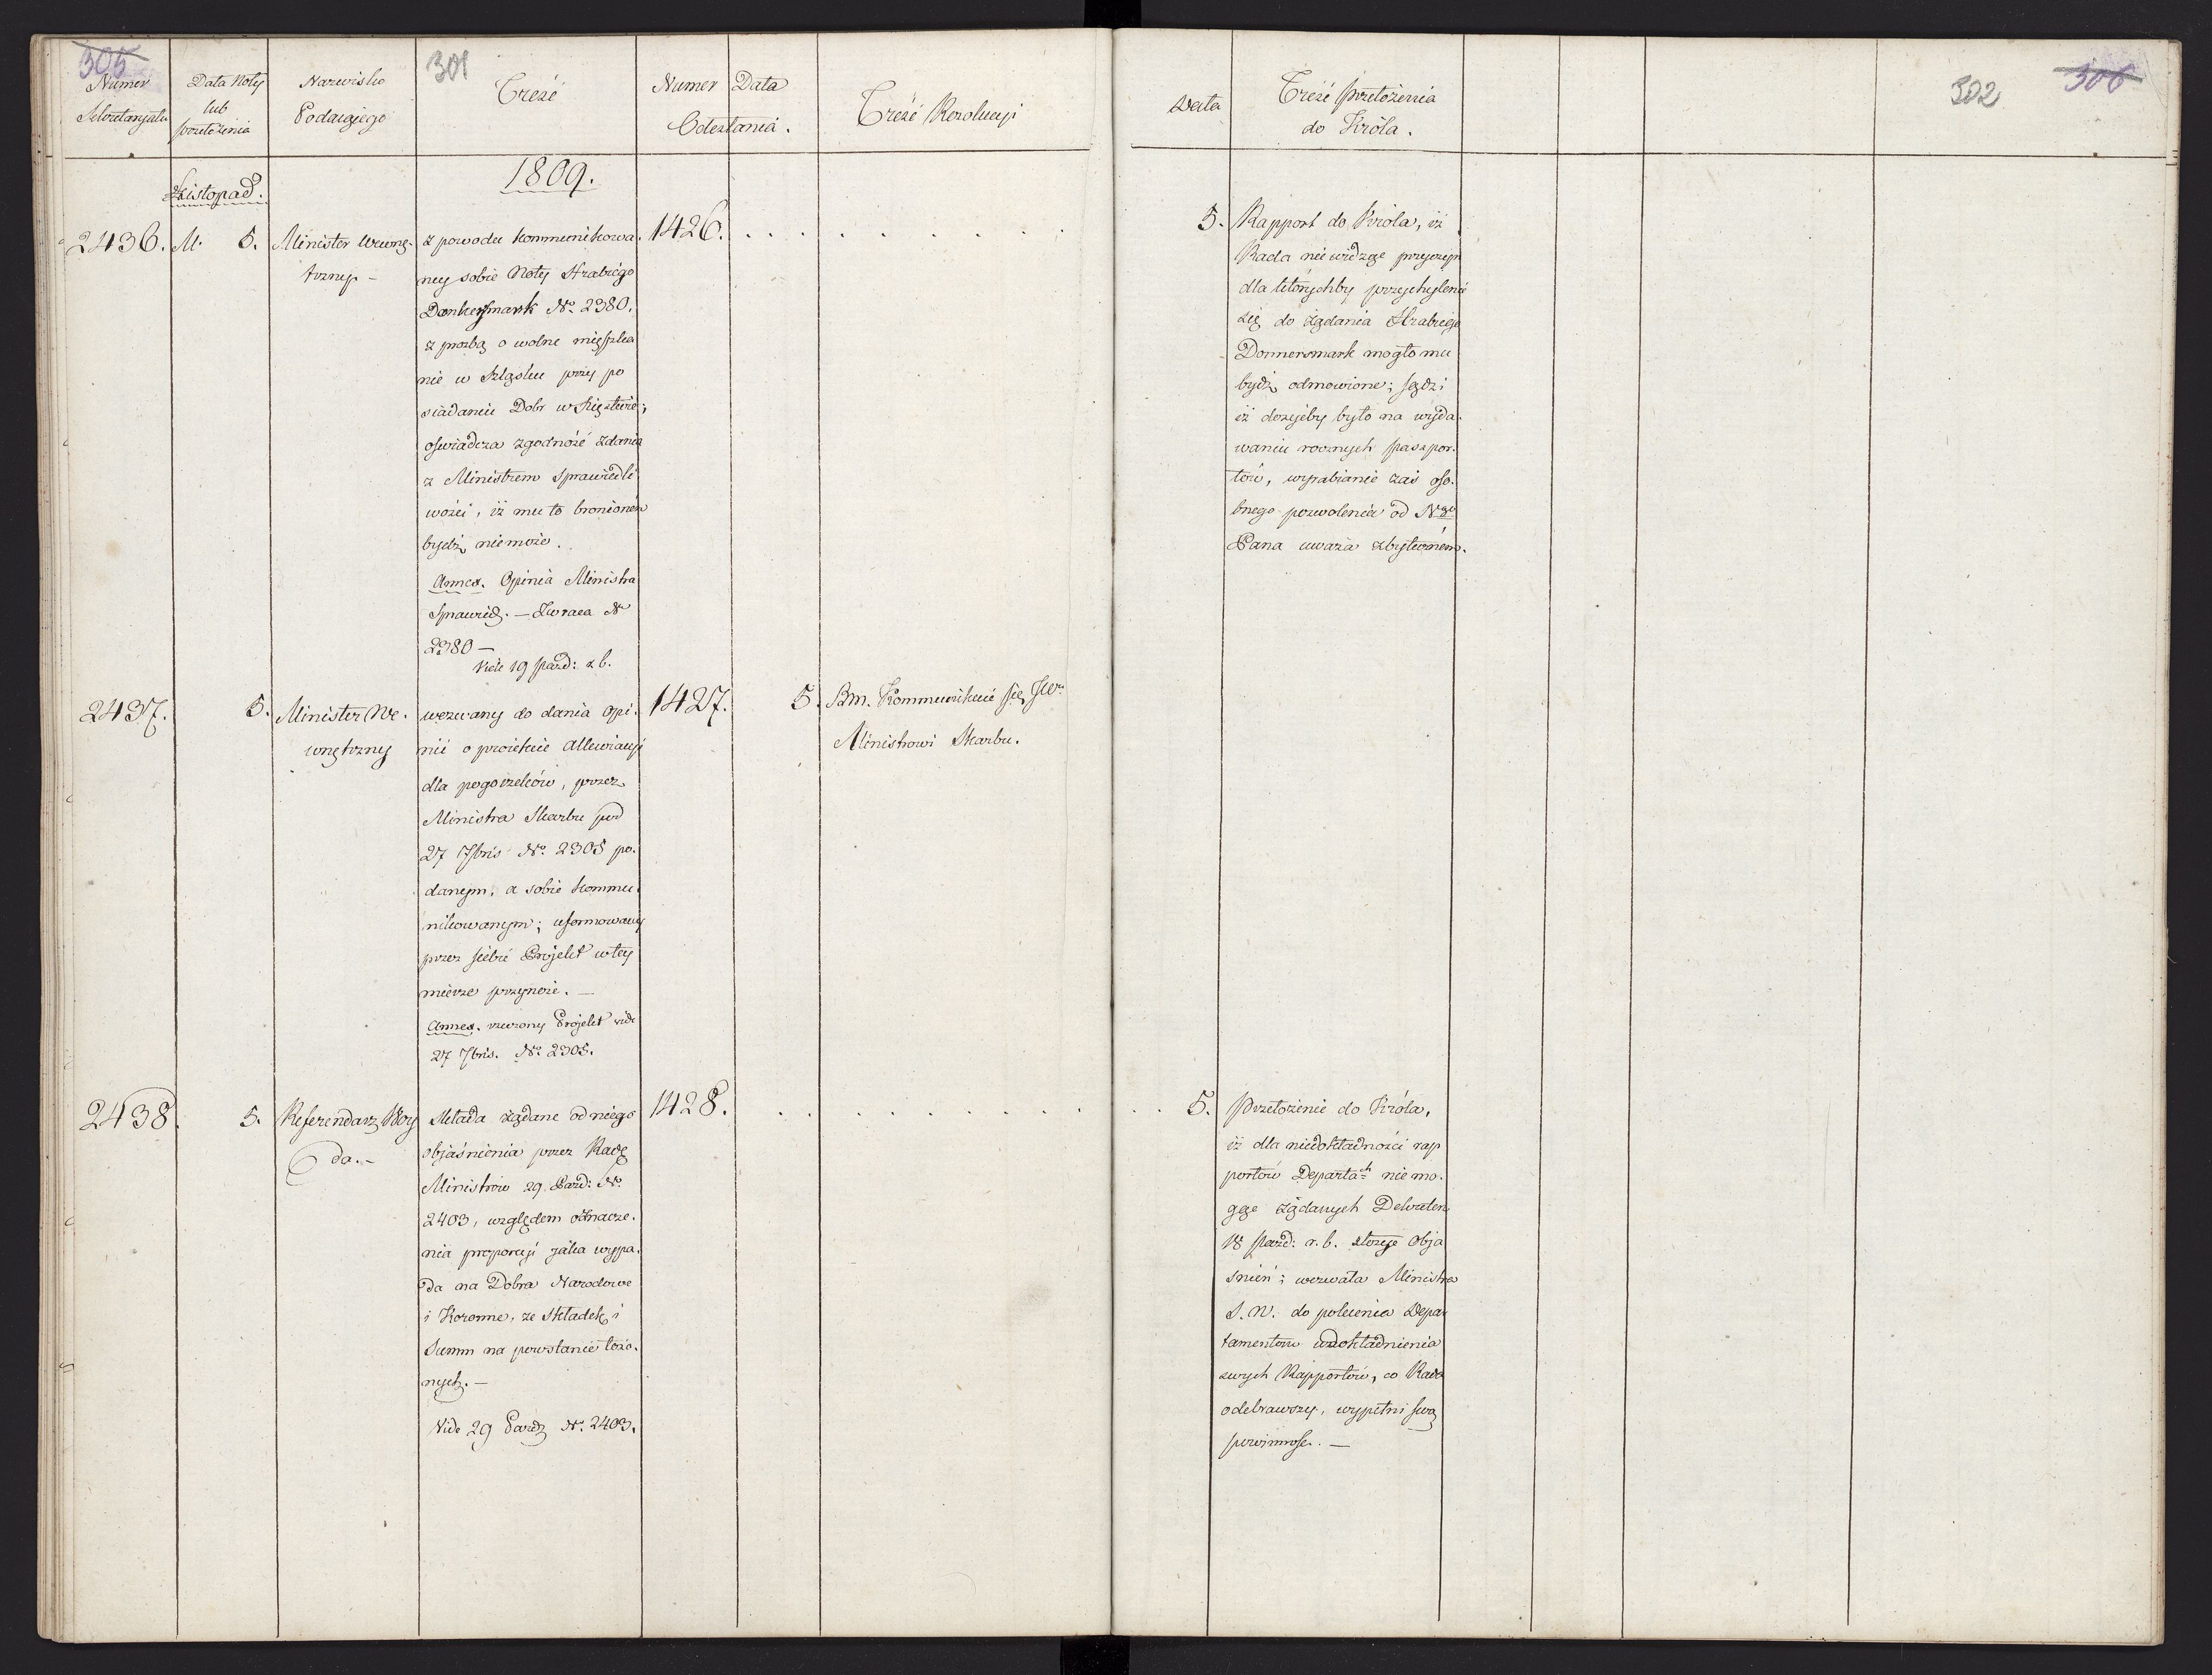 305
301
Numer
Sekretaryatu
Data Noty
lub
przełożenia
Nazwisko
Podaiącego
Treść
Numer
Data
Odesłania.
Treść Rezolucyi
Data
Treść przełożenia
do Króla.
302
306
1809.
Listopad.
2436.
M. 5.
Minister Wewnę-
trzny –
z powodu kommunikowa-
ney sobie Noty Hrabiego
Donnersmark No. 2380,
z prozbą o wolne mięszka
nie w Szląsku przy po
siadaniu Dobr w Xięztwie;
oświadcza zgodność zdania
z Ministrem Sprawiedli
wości, iż mu to bronione
bydź niemoże.
Annex. Opinia Ministra
Sprawied. – Zwraca No
2380 –
Vide 19 pazd: r b.
1426.
5.
Rapport do Króla, iż
Rada nie widząc przyczyn
dla którychby przychylenie
się do żądania Hrabiego
Donnersmark mogło mu
bydź odmowione; sądzi
iż dosyćby było na wyda-
waniu rocznych paszpor-
tów, wyrabianie zaś oso-
bnego pozwolenia od Ngo
Pana uważa zbyteczném.
2437.
5.
Minister We-
wnętrzny
wezwany do dania opi-
nii o proiekcie allewiacyi
dla pogorzelców, przez
Ministra Skarbu pod
27 7bris No. 2305 po-
danym, a sobie kommu-
nikowanym; uformowany
przez siebie Projekt w tey
mierze przynosi. –
Annex. rzeczony Projekt vide
27 7bris. No. 2305.
1427.
5.
Bm. Kommunikuie się JW.
Ministrowi Skarbu.
2438.
5.
Referendarz Woy
da. –
Składa żądane od niego
objaśnienia przez Radę
Ministrów 29. Pazd: No.
2403, względem oznacze-
nia proporcyi jaka wypa-
da na Dobra Narodowe
i Koronne, ze składek i
Summ na powstanie łożo-
nych. –
Vide 29 Pazdz No. 2403.
1428.
5.
Przełożenie do Króla,
iż dla niedokładności rap
portów Departach nie mo-
gąc żądanych Dekretem
18 pazd: r. b. złożyć obja
śnień; wezwała Ministra
S. W. do polecenia Depar
tamentom udokładnienia
swych Rapportów, co Rada
odebrawszy, wypełni swą
powinność. –